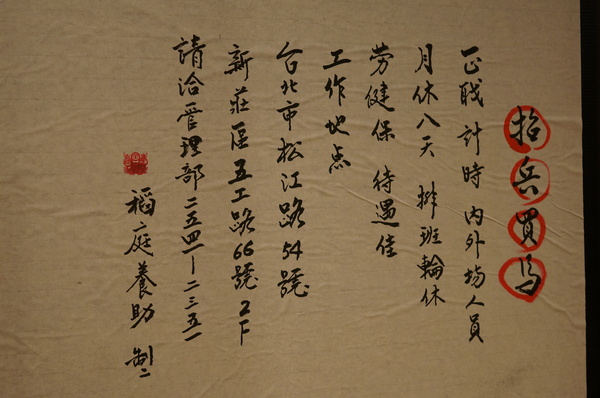 招兵買馬
正職 計時 內外場人員
月休八天 排班輪休
勞健保 待遇佳
工作地点
台北市松江路54號
新莊區五工路66號2F
請洽管理部二五四一-二三五一
稻庭養助 製